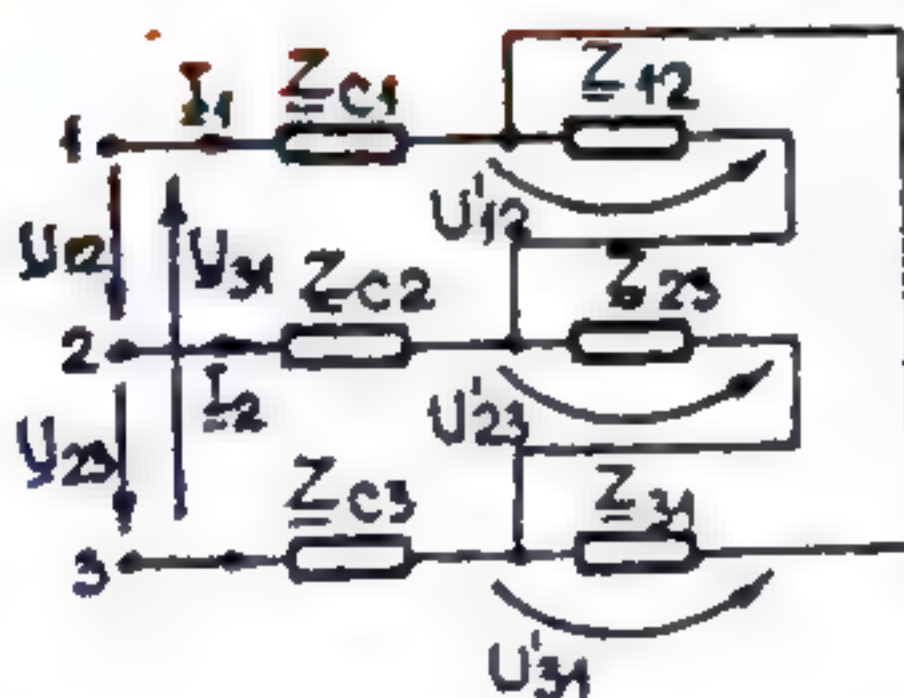 I1 ZC1 Z12
1
U'12
U12 U31 ZC2 Z23
2
I2 U'23
U23 ZC3 Z31
3
U'31